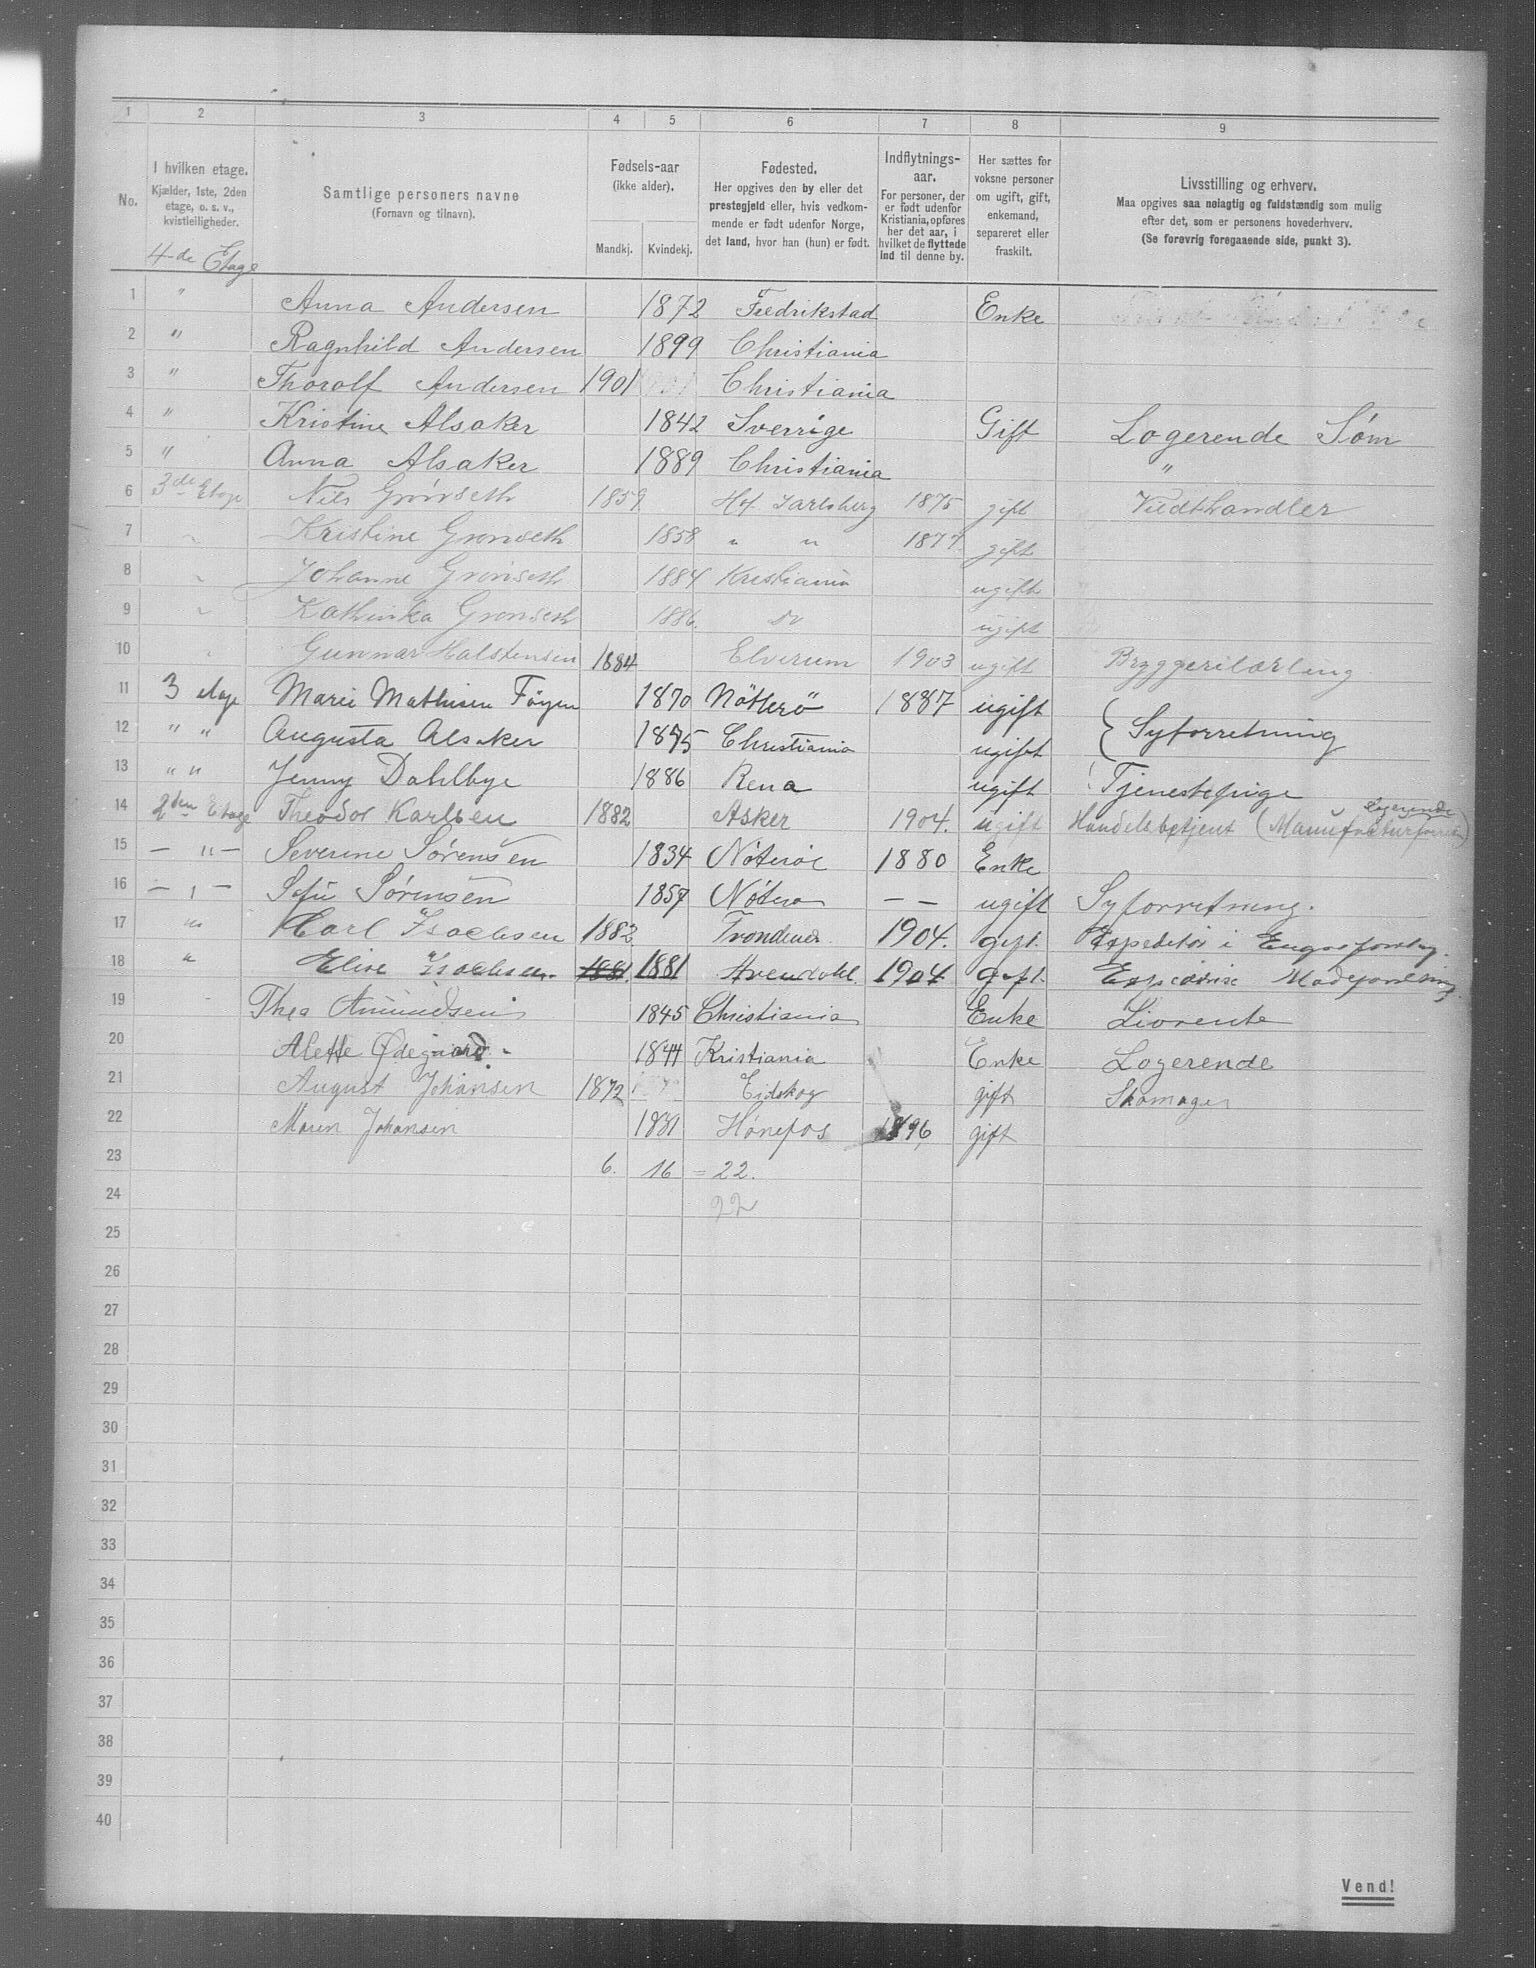 1 2 3 4 5 6 7 8 9
No. I hvilken etage. Kjælder, 1ste, 2den etage, o. s. v., kvistleiligheder. Samtlige personers navne (Fornavn og tilnavn). Fødsels-aar (ikke alder). Mandkj. Kvindekj. Fødested. Her opgives den by eller det prestegjeld eller, hvis vedkommende er født udenfor Norge, det land, hvor han (hun) er født. Indflytnings-aar. For personer, der er født udenfor Kristiania, opføres her det aar, i hvilket de flyttede ind til denne by. Her sættes for voksne personer om ugift, gift, enkemand, separeret eller fraskilt. Livsstilling og erhverv. Maa opgives saa nøiagtig og fuldstændig som mulig efter det, som er personens hovederhverv. (Se forøvrig foregaaende side, punkt 3).
4-de Etage
1 " Anna Andersen 1872 Fredrikstad Enke
2 " Ragnhild Andersen 1899 Christiania
3 " Thorolf Andersen 1901 Christiania
4 " Kristine Alsaker 1842 Sverrige Gift Logerende Søm
5 " Anna Alsaker 1889 Christiania "
6 3de Etage Nils Grönseth 1859 Hof Jarlsberg 1875 gift Vedthandler
7 " Kristine Grønseth 1858 " " 1877 gift
8 " Johanne Grønseth 1884 Kristiania ugift
9 " Kathinka Grønseth 1886. do ugift
10 " Gunnar Halstensen 1884 Elverum 1903 ugift Bryggerilærling
11 3 etage Marie Mathisen Föyen 1870 Nötterö 1887 ugift
12 " " Augusta Alsaker 1875 Christiania ugift { Syforretning
13 " " Jenny Dahlbye 1886 Rena ugift Tjenestepige
14 2den Etage Theodor Karlsen 1882 Asker 1904. ugift Handelsbetjent (Manufakturforretn) Logerende
15 — " — Severine Sørensen 1834 Nøterøe 1880 Enke
16 — " — Sofie Sørensen 1857 Nøterø — — ugift Syforretning.
17 " Carl Isachsen 1882 Trondhjem. 1904. gift. Expeditør i Engrosforretng.
18 " Elise Isachsen. 1881. 1881 Arendahl. 1904 gift. Expeditrise Modeforretning
19 " Thea Amundsen 1845 Christiania Enke Livrente
20 Alette Ødegaard. 1844 Kristiania Enke Logerende
21 August Johansen 1872 Eidskog gift Skomager
22 Maren Johansen 1881 Hønefos 1896 gift
23 6. 16 = 22.
24 22
25
26
27
28
29
30
31
32
33
34
35
36
37
38
39
40
Vend!